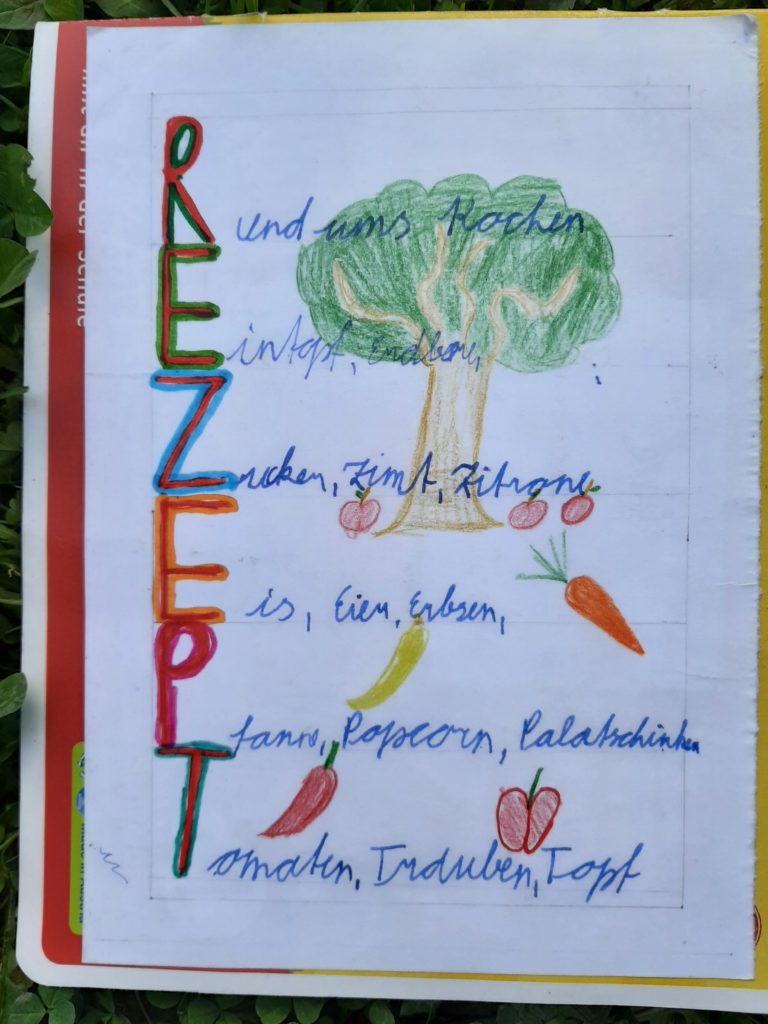 Rund ums Kochen
Eintopf, Erdbere,
Zucker, Zimt, Zitrone
Eis, Eier, Erbsen,
Pfanne, Popcorn, Palatschinken
Tomaten, Trauben, Topf